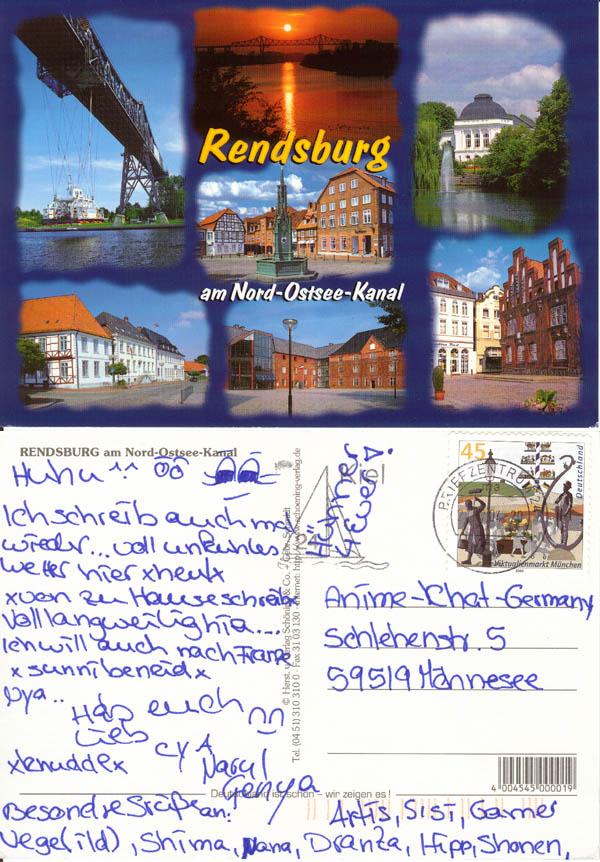 Rendsburg
am Nord-Ostsee-Kanal
RENDSBURG am Nord-Ostsee-Kanal
Huhu ^^ ÖÖ
Ich schreib auch ma
wieder... voll unkuhles
wetter hier xheulx
xvon zu Hause schreibx
Voll langweilig hia...
Ich will auch nach
x sunni beneid x
Nya..
Hab euch
lieb
cya
xknuddlx
© Herst. u. Verlag Schöning & Co. + Gebr. Schmidt
Tel. (04 51) 310 310 0 · Fax 31 03 130 · Internet: http://www.schoening-verlag.de
BRIEFZENTRUM
45
Deutschland
Viktualienmarkt München
Anime-Chat-Germany
Schlehenstr. 5
59519 Möhnesee
4 004545 000019
Deutschland ist schön – wir zeigen es!
Besondre Grüße an: Artis, Sisi, Gamer
Vege(ild), Shima, Nana, Dranza, Hipp, Shonen,